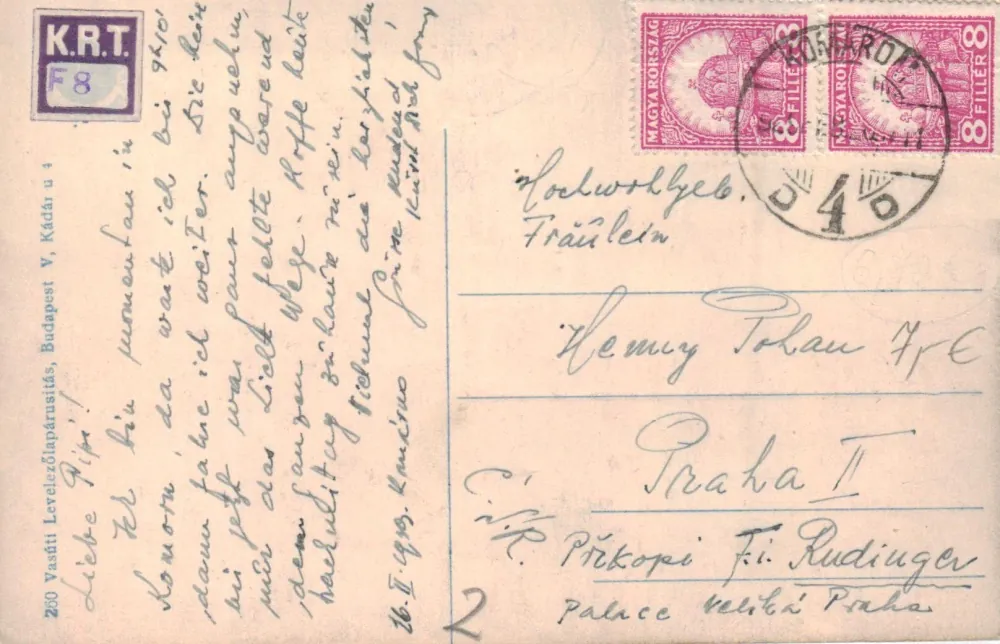 K.R.T.
F 8
260 Vasúti Levelezőlapárusitás, Budapest V, Kádár u 4
Liebe Pipi!
Ich bin momentan in
Komorn da warte ich bis 9h 10'
dann fahre ich weiter. Die Reise
bis jetzt war ganz angenehm,
nur das Licht fehlte wärend
dem ganzen Wege. Hoffe heute
nachmittag zuhause zu sein.
Nichmal die herzlichsten
Grüsse
26. II Komárno
MAGYARORSZÁG
8 FILLÉR 8
MAGYARORSZÁG
8 FILLÉR 8
KOMÁROM
D 4 D
Hochwohlgeb.
Fräulein
Henny Pohan
Praha II
Příkopi Fi. Rudinger
Palace Veliká Praha
2